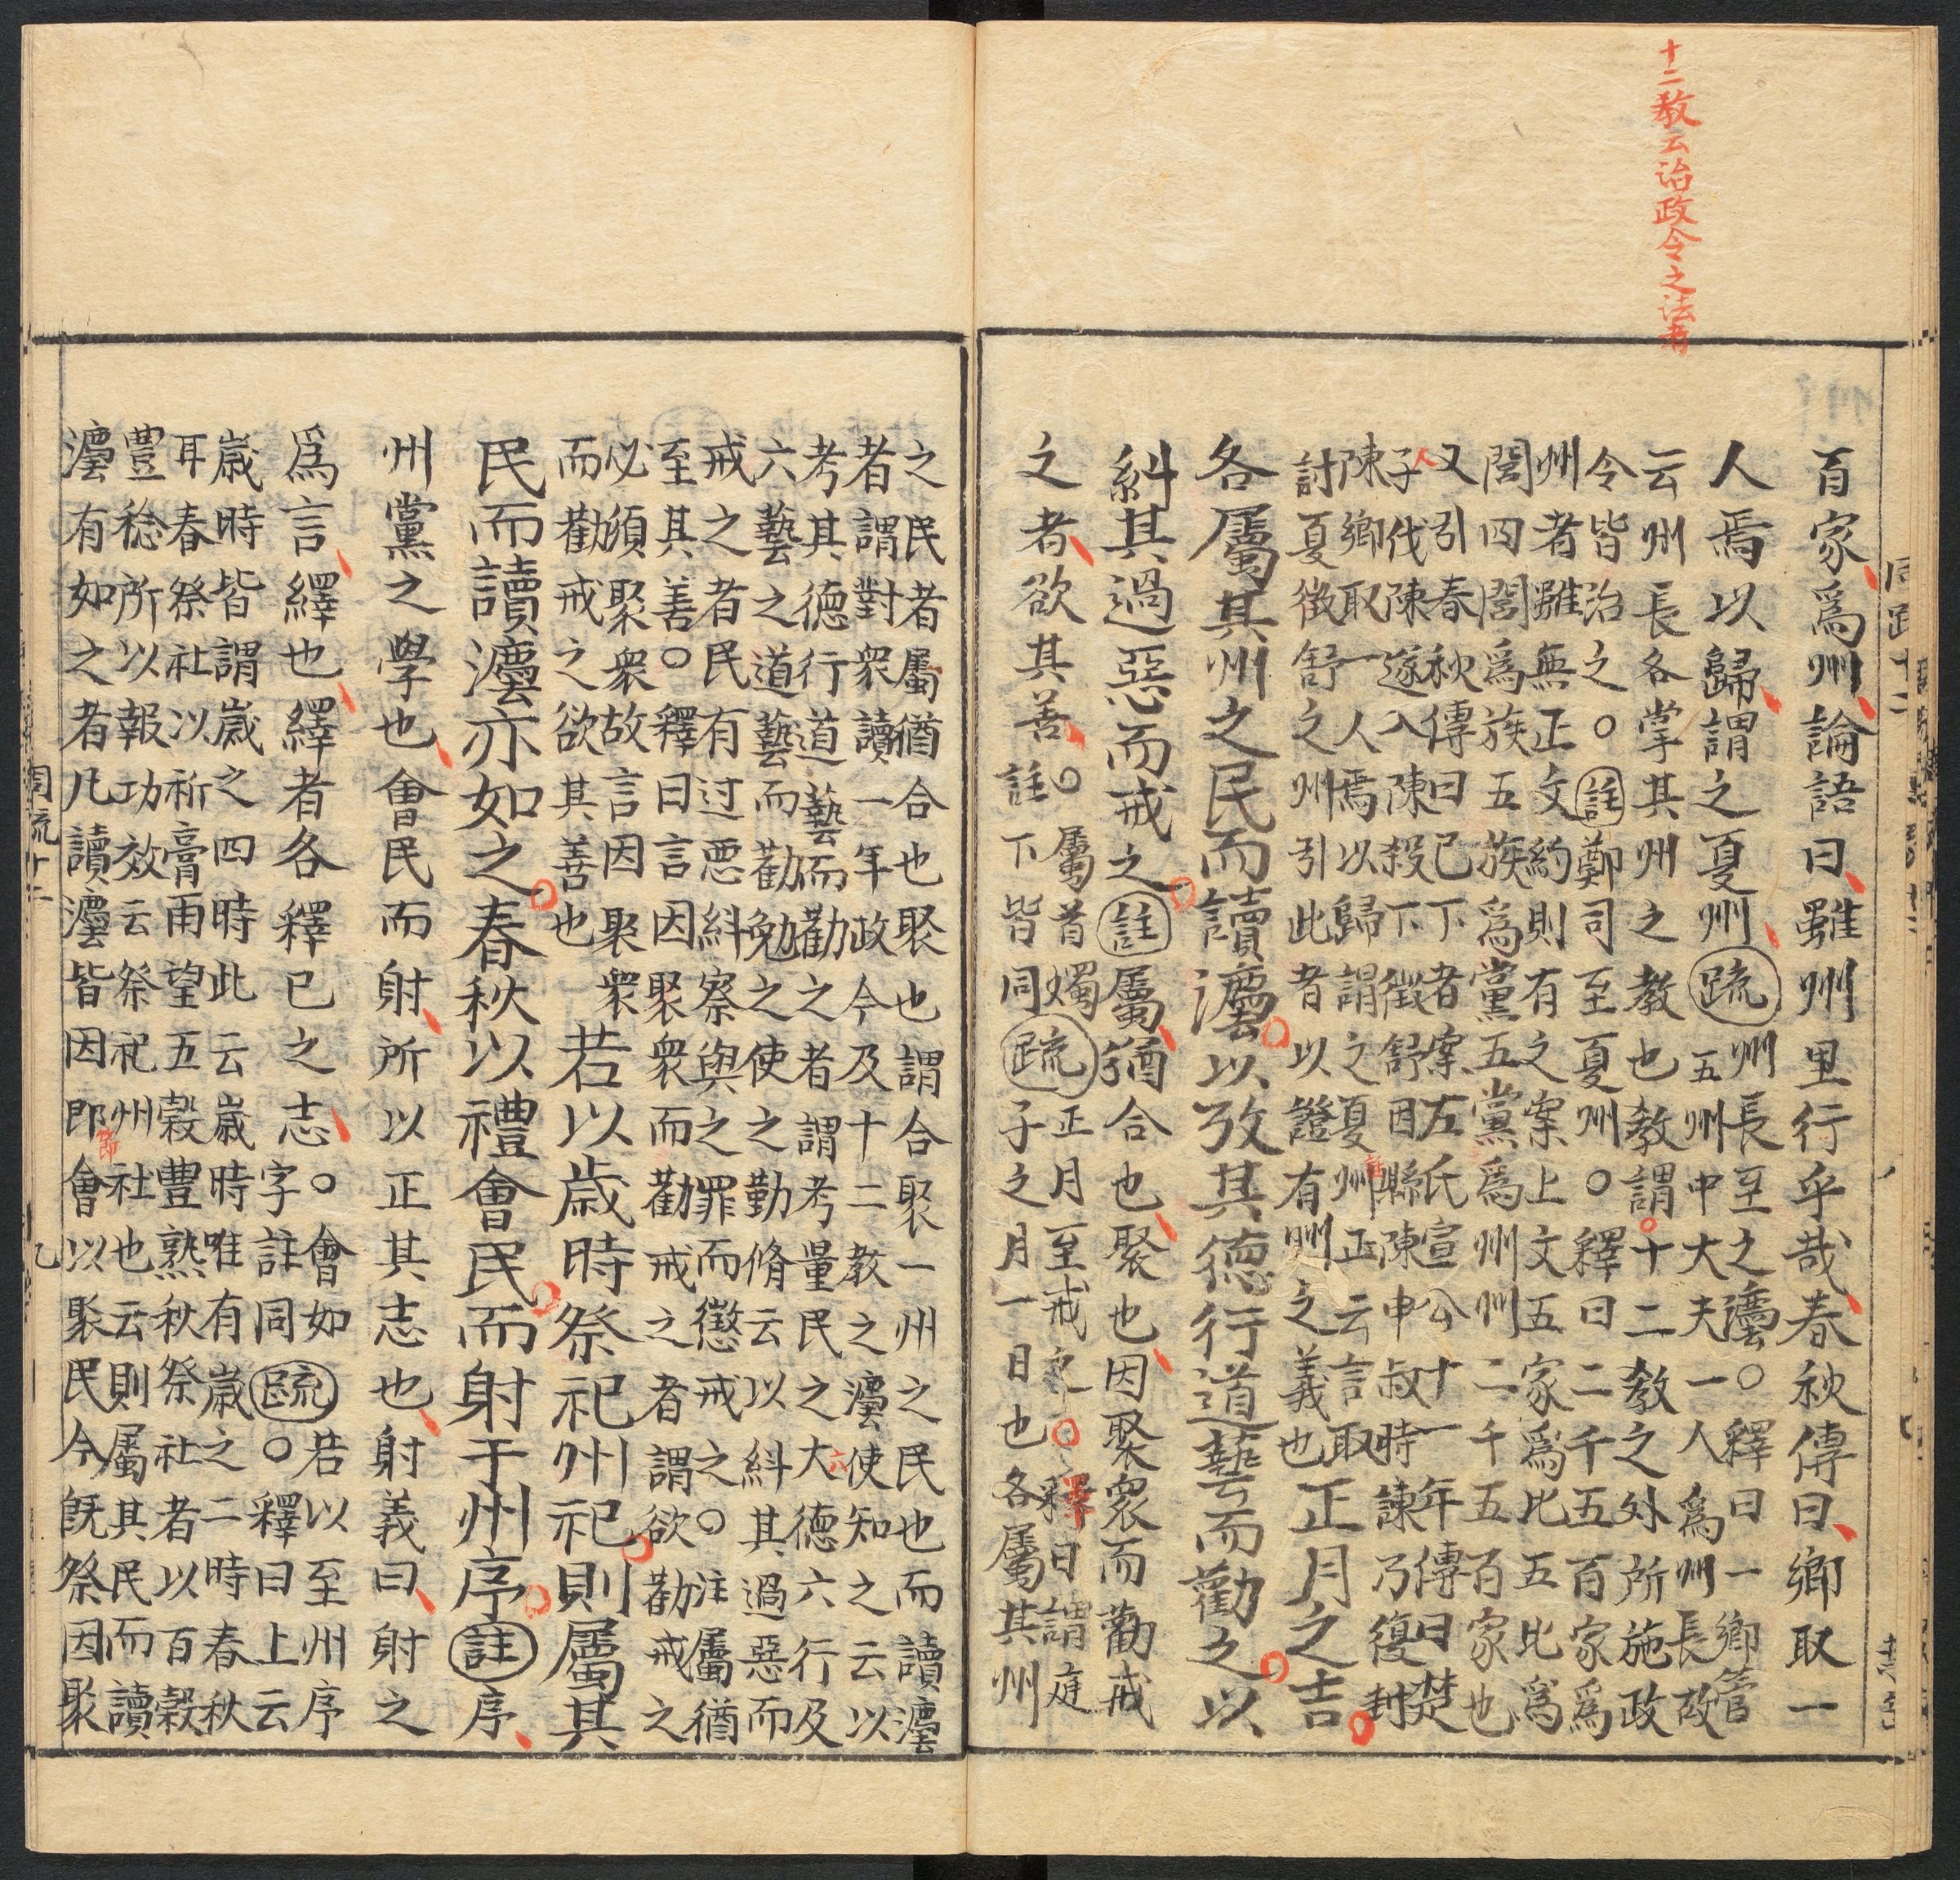 十二教云治政令之法者
百家爲州論語曰雖州里行乎哉春秋傳曰鄉取一
人焉以歸謂之夏州疏
州長至之灋○釋曰一鄉管
五州中大夫一人爲州長故
云州長各掌其州之教也教謂十二教之外所施政
令皆治之○註鄭司至夏州○釋曰二千五百家爲
州者雖無正文約則有之案上文五家爲比五比爲
閭四閭爲族五族爲黨五黨爲州州二千五百家也
又引春秋傳曰已下者案左氏宣公十一年傳曰楚
子人伐陳遂入陳殺下徵舒因縣陳申叔時諫乃復封
陳鄉取一人焉以歸謂之夏州正云言取
討夏徵舒之州引此者以證有州之義也
正月之吉
各屬其州之民而讀灋以攷其德行道藝而勸之以
糾其過惡而戒之註屬猶合也聚也因聚衆而勸戒
文者欲其善○
屬音燭
註下皆同
疏
正月至戒之○釋曰謂庭
子之月一日也各屬其州
之民者屬猶合也聚也謂合聚一州之民也而讀灋
者謂對衆讀一年政令及十二教之灋使知之云以
考其德行道藝而勸之者謂考量民之大六德六行及
六藝之道藝而勸勉之使之勤脩云以糾其過惡而
戒之者民有过惡糾察與之罪而懲戒之○注屬猶
至其善○釋曰言因聚衆而勸戒之者謂欲勸戒之
必須聚衆故言因聚衆
而勸戒之欲其善也
若以歲時祭祀州祀則屬其
民而讀灋亦如之春秋以禮會民而射于州序註序
州黨之學也會民而射所以正其志也射義曰射之
爲言繹也繹者各釋已之志○
會如
字註同
疏
若以至州序
○釋曰上云
歲時皆謂歲之四時此云歲時唯有歲之二時春秋
耳春祭社以祈膏雨望五穀豐熟秋祭社者以百穀
豐稔所以報功效云祭祀州社也云則屬其民而讀
灋有如之者凡讀灋皆因即節會以聚民今旣祭因聚
周疏十二
九